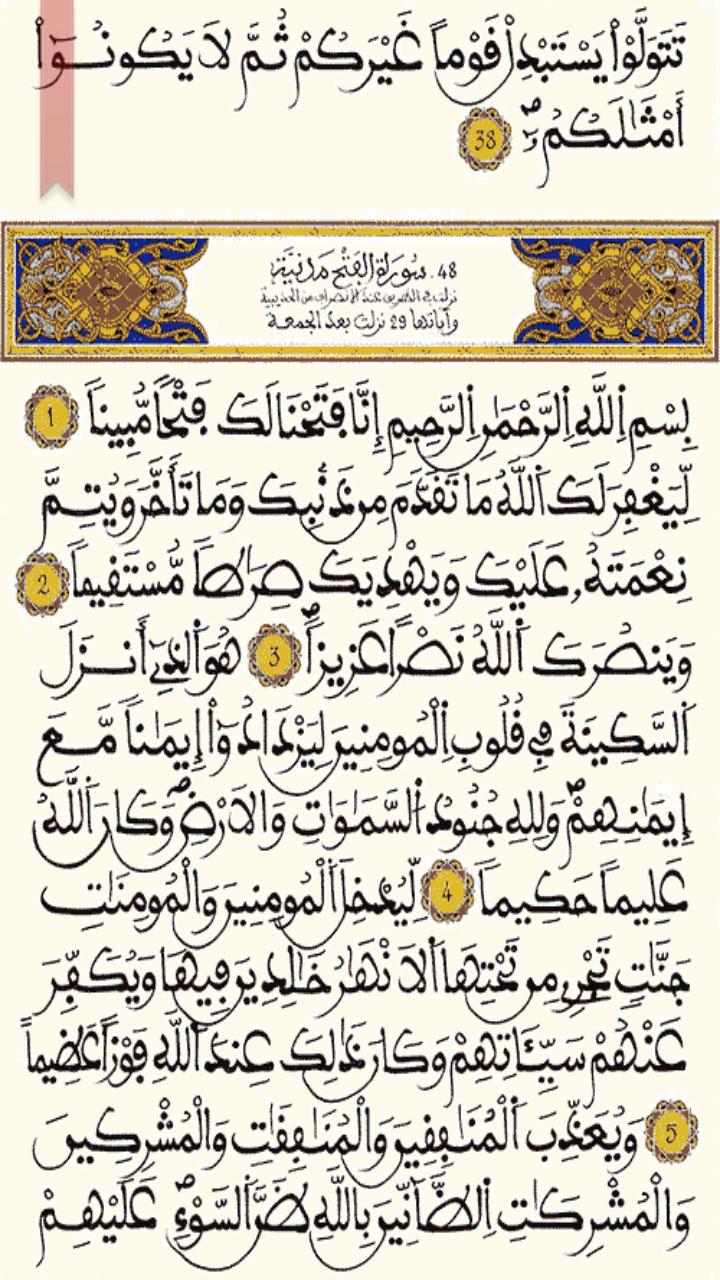 تَتَوَلَّوْاْ يَسْتَبْدِلْ قَوْماً غَيْرَكُمْ ثُمَّ لَا يَكُونُوٓاْ
أَمْثَٰلَكُمْۖ 38
48. سُورَةُ الفَتْحِ مَدَنِيَّة
نزلت في الطريق عند الانصراف من الحديبية
وآياتها 29 نزلت بعد الجمعة
بِسْمِ اِ۬للَّهِ اِ۬لرَّحْمَٰنِ اِ۬لرَّحِيمِ إِنَّا فَتَحْنَا لَكَ فَتْحاً مُّبِيناً 1
لِّيَغْفِرَ لَكَ اَ۬للَّهُ مَا تَقَدَّمَ مِن ذَنۢبِكَ وَمَا تَأَخَّرَ وَيُتِمَّ
نِعْمَتَهُۥ عَلَيْكَ وَيَهْدِيَكَ صِرَٰطاً مُّسْتَقِيماً 2
وَيَنصُرَكَ اَ۬للَّهُ نَصْراً عَزِيزاًۖ 3 هُوَ اَ۬لذِےٓ أَنزَلَ
اَ۬لسَّكِينَةَ فِے قُلُوبِ اِ۬لْمُومِنِينَ لِيَزْدَادُوٓاْ إِيمَٰناً مَّعَ
إِيمَٰنِهِمْۖ وَلِلهِ جُنُودُ اُ۬لسَّمَٰوَٰتِ وَالَارْضِۖ وَكَانَ اَ۬للَّهُ
عَلِيماً حَكِيماً 4 لِّيُدْخِلَ اَ۬لْمُومِنِينَ وَالْمُومِنَٰتِ
جَنَّٰتٍ تَجْرِے مِن تَحْتِهَا اَ۬لَانْهَٰرُ خَٰلِدِينَ فِيهَا وَيُكَفِّرَ
عَنْهُمْ سَيِّـَٔاتِهِمْ وَكَانَ ذَٰلِكَ عِندَ اَ۬للَّهِ فَوْزاً عَظِيماً
5 وَيُعَذِّبَ اَ۬لْمُنَٰفِقِينَ وَالْمُنَٰفِقَٰتِ وَالْمُشْرِكِينَ
وَالْمُشْرِكَٰتِ اِ۬لظَّآنِّينَ بِاللَّهِ ظَنَّ اَ۬لسَّوْءِۖ عَلَيْهِمْ